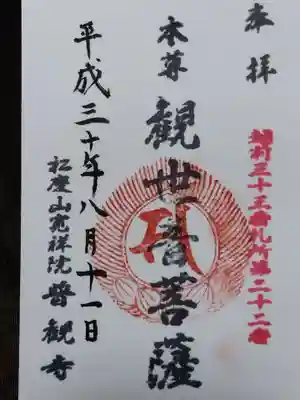 奉拝
本尊
観世音菩薩
平成三十年八月十一日
松慶山寛祥院
普観寺
三十三番札所第二十二番